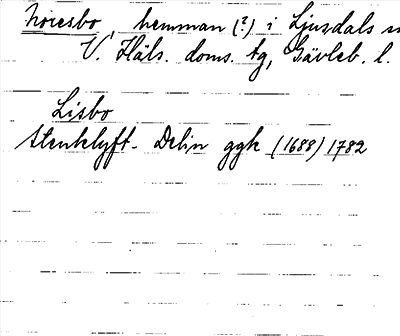 Noresbo, hemman (?) i Ljusdals
V. Häls. doms. tg, Gävleb. l.
Lisbo
Stenklyft. Delin ggk (1688) 1782